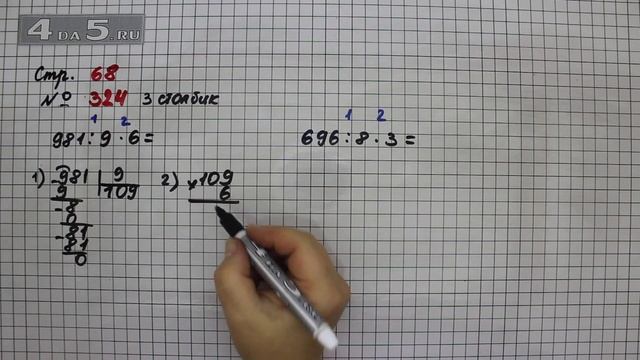 4 DA 5.RU
Стр. 68
№ 324 3 столбик
1 2
981 : 9 · 6 =
1 2
696 : 8 · 3 =
1) 981 | 9
9 109
- 8
0
- 81
81
0
2) × 109
6